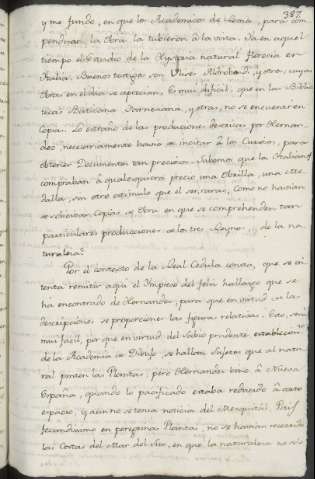 387.
y me fundo, en que los Academicos de Roma, para com
pendiar la Obra la tubieron à la vista. Ya en aquel
tiempo el estudio de la Historia natural florecia en
Italia, Buenos testigos son Ulises Aldrobandi, y otros, cuyas
Obras en el dia se aprecian. Es mui dificil, que en las Biblio
tecas Baticana Farneciana, y otras, no se encuentren
Copias. Lo estraño de las producciones descritas por Hernan
dez necesariamente havia de incitar à los Curiosos, para
obtener Documentos tan preciosos. Sabemos que los Italianos
compraban à qualesquiera precio una Obrilla, una Me
dalla, sin otro estimulo que el ser raras; Como no havian
se solicitar Copias de Obra en que se comprehenden tan
particulares producciones de los tres Reynos, de la na
turaleza?
Por el contexto de la Real Cedula consta, que se in
tenta remitir aqui el Impreso del feliz hallazgo que se
ha encontrado de Hernandez, para que en virtud de las
descripciones se proporcionen las figuras relativas. Esto, es
mui facil, por que en virtud del sabio prudente establecim.to
de la Academia de Dibujo, se hallan Sujetos que al natu
ral pinten las Plantas; pero Hernandez vino à Nueva
España, quando lo pacificado estaba reducido à corto
espacio, y aun no se tenia noticia del Mesquital. Pais
fecundissimo en peregrinas Plantas, no se havian reconocido
las Costas del Mar del Sur, en que la naturaleza se